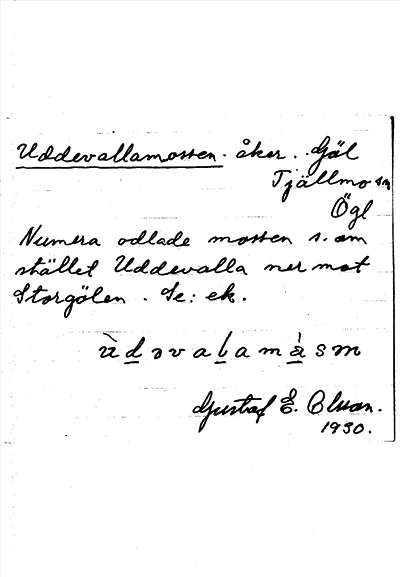 Uddevallamossen. åker. Göl
Tjällmo sn
Ögl
Numera odlade mossen s. om
stället Uddevalla ner mot
Storgölen. Se: ek.
ùdəvalamàsm
Gustaf E. Olsson.
1930.